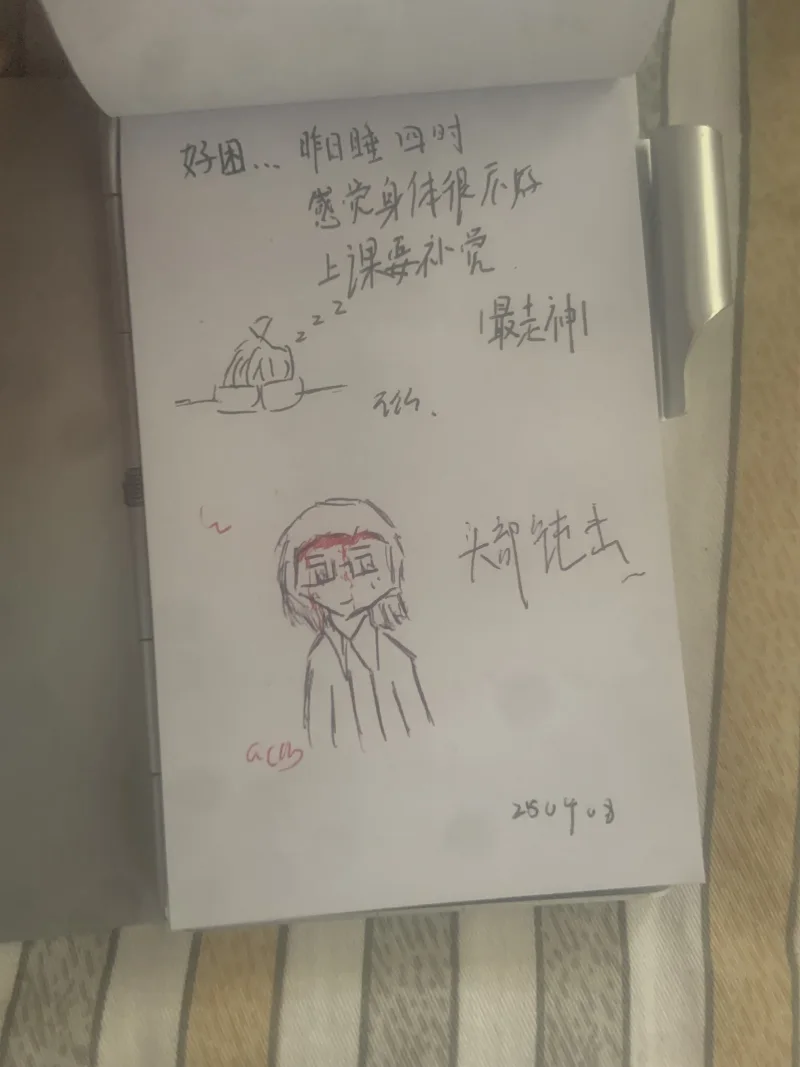 好困... 昨日睡四时
感觉身体很不好
上课要补觉
z z z
最走神
头部钝击~
250408